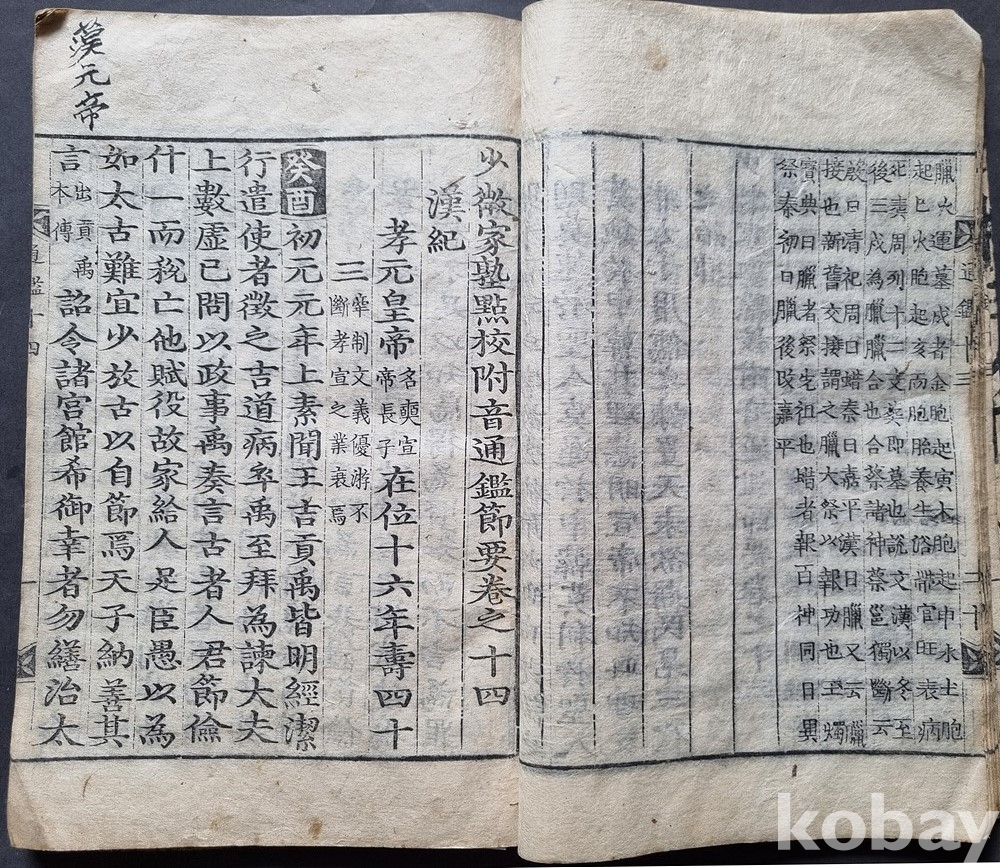 臘火運墓戌者金胞起寅木胞起申水土胞
起巳火胞起亥而胞胎養生俗帶官旺衰病
死葬周列十二支葬即墓也說文漢以冬至
後三戌為臘臘合也合祭諸神蔡邕獨斷云
殷曰清祀周曰蜡秦曰嘉平漢曰臘又云臘
接也新舊交接謂之臘大祭以報功也玉燭
寶典曰臘者祭先祖也蜡者報百神同日異
祭秦初曰臘後改嘉平
通鑑十三
二十
少微家塾點校附音通鑑節要卷之十四
漢紀
孝元皇帝名奭宣帝長子在位十六年壽四十
三牽制文義優游不斷孝宣之業衰焉
癸酉初元元年上素聞王吉貢禹皆明經潔
行遣使者徵之吉道病卒禹至拜為諫大夫
上數虛己問以政事禹奏言古者人君節儉
什一而稅亡他賦役故家給人足臣愚以為
如太古難宜少放古以自節焉天子納善其
言出貢禹本傳詔令諸宮館希御幸者勿繕治太
通鑑十四
一
漢元帝
kobay